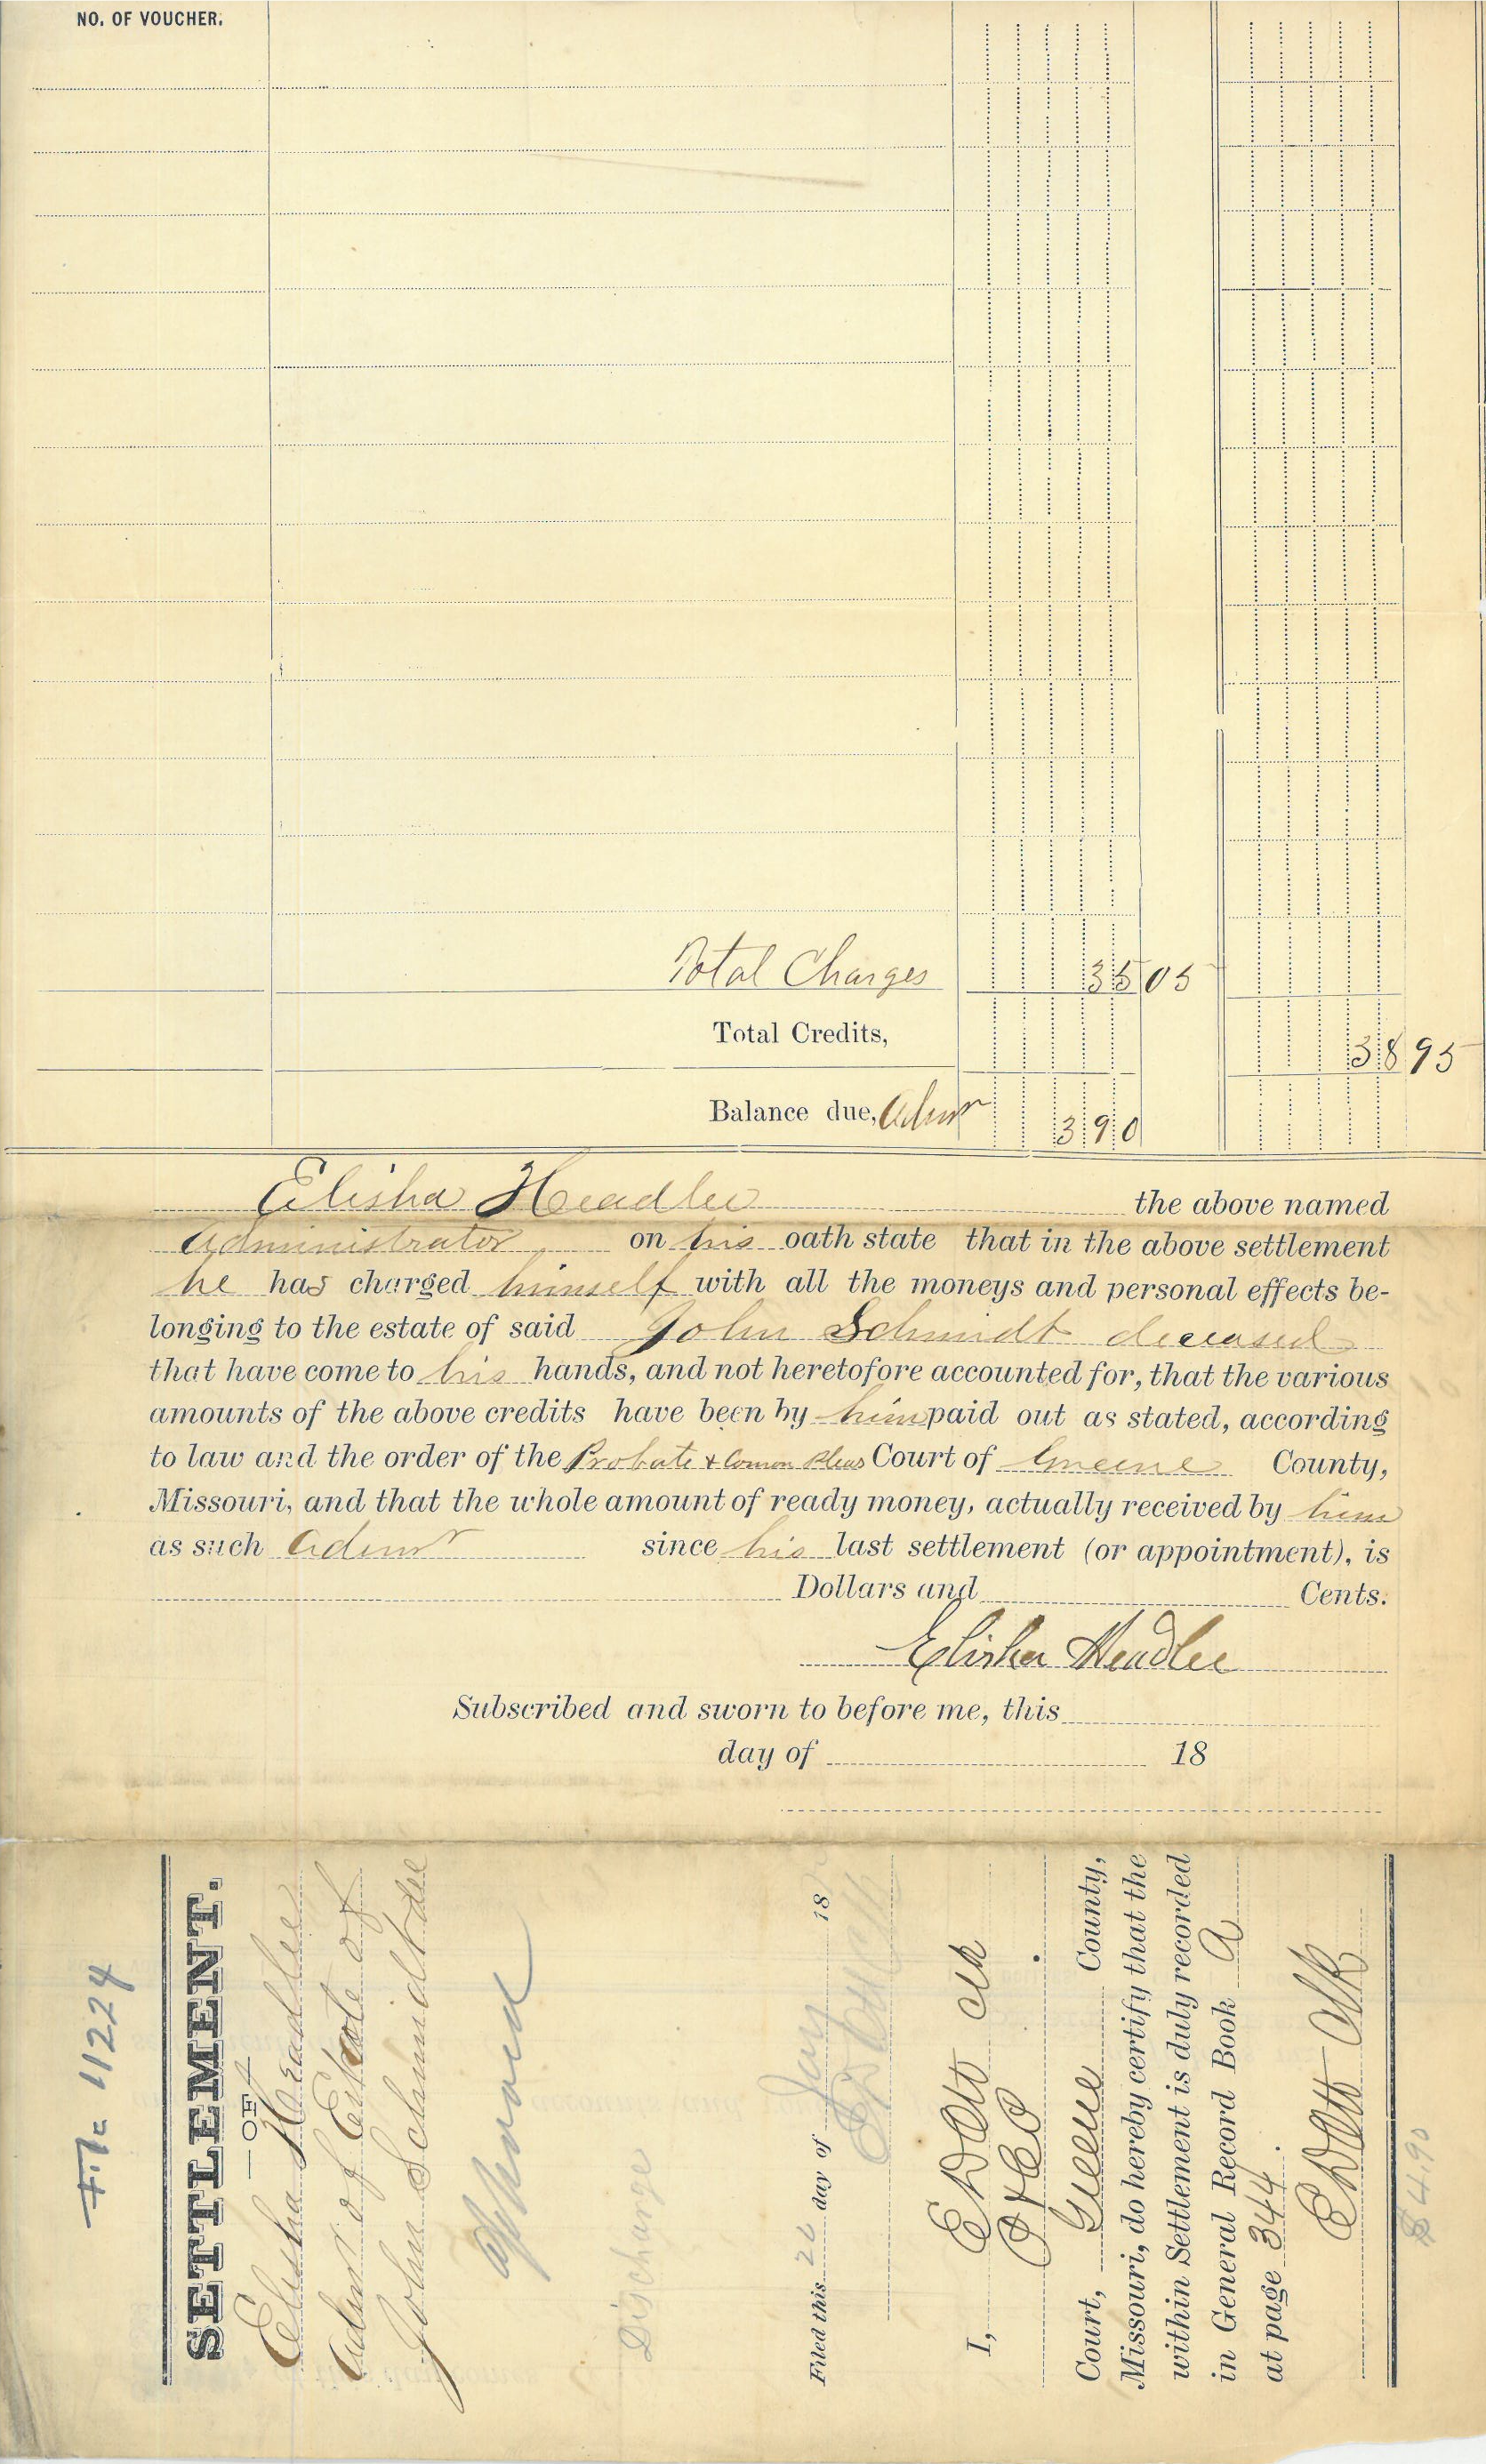 NO. OF VOUCHER.
Total Charges 35 05
Total Credits, 38 95
Balance due, Admr 3 90
Elisha Headlee the above named
Administrator on his oath state that in the above settlement
he has charged himself with all the moneys and personal effects be-
longing to the estate of said John Schmidt deceased
that have come to his hands, and not heretofore accounted for, that the various
amounts of the above credits have been by him paid out as stated, according
to law and the order of the Probate & Comon Pleas Court of Greene County,
Missouri, and that the whole amount of ready money, actually received by him
as such Admr since his last settlement (or appointment), is
Dollars and Cents.
Elisha Headlee
Subscribed and sworn to before me, this
day of 18
File 11224
SETTLEMENT.
—OF—
Elisha Headlee
Admr of Estate of
John Schmidt decd
Approved
Discharge
Filed this 22 day of July 18
E D Ott Clk
I, E D Ott Clk
P & C P
Court, Greene County,
Missouri, do hereby certify that the
within Settlement is duly recorded
in General Record Book A
at page 344.
E D Ott Clk
$4.90